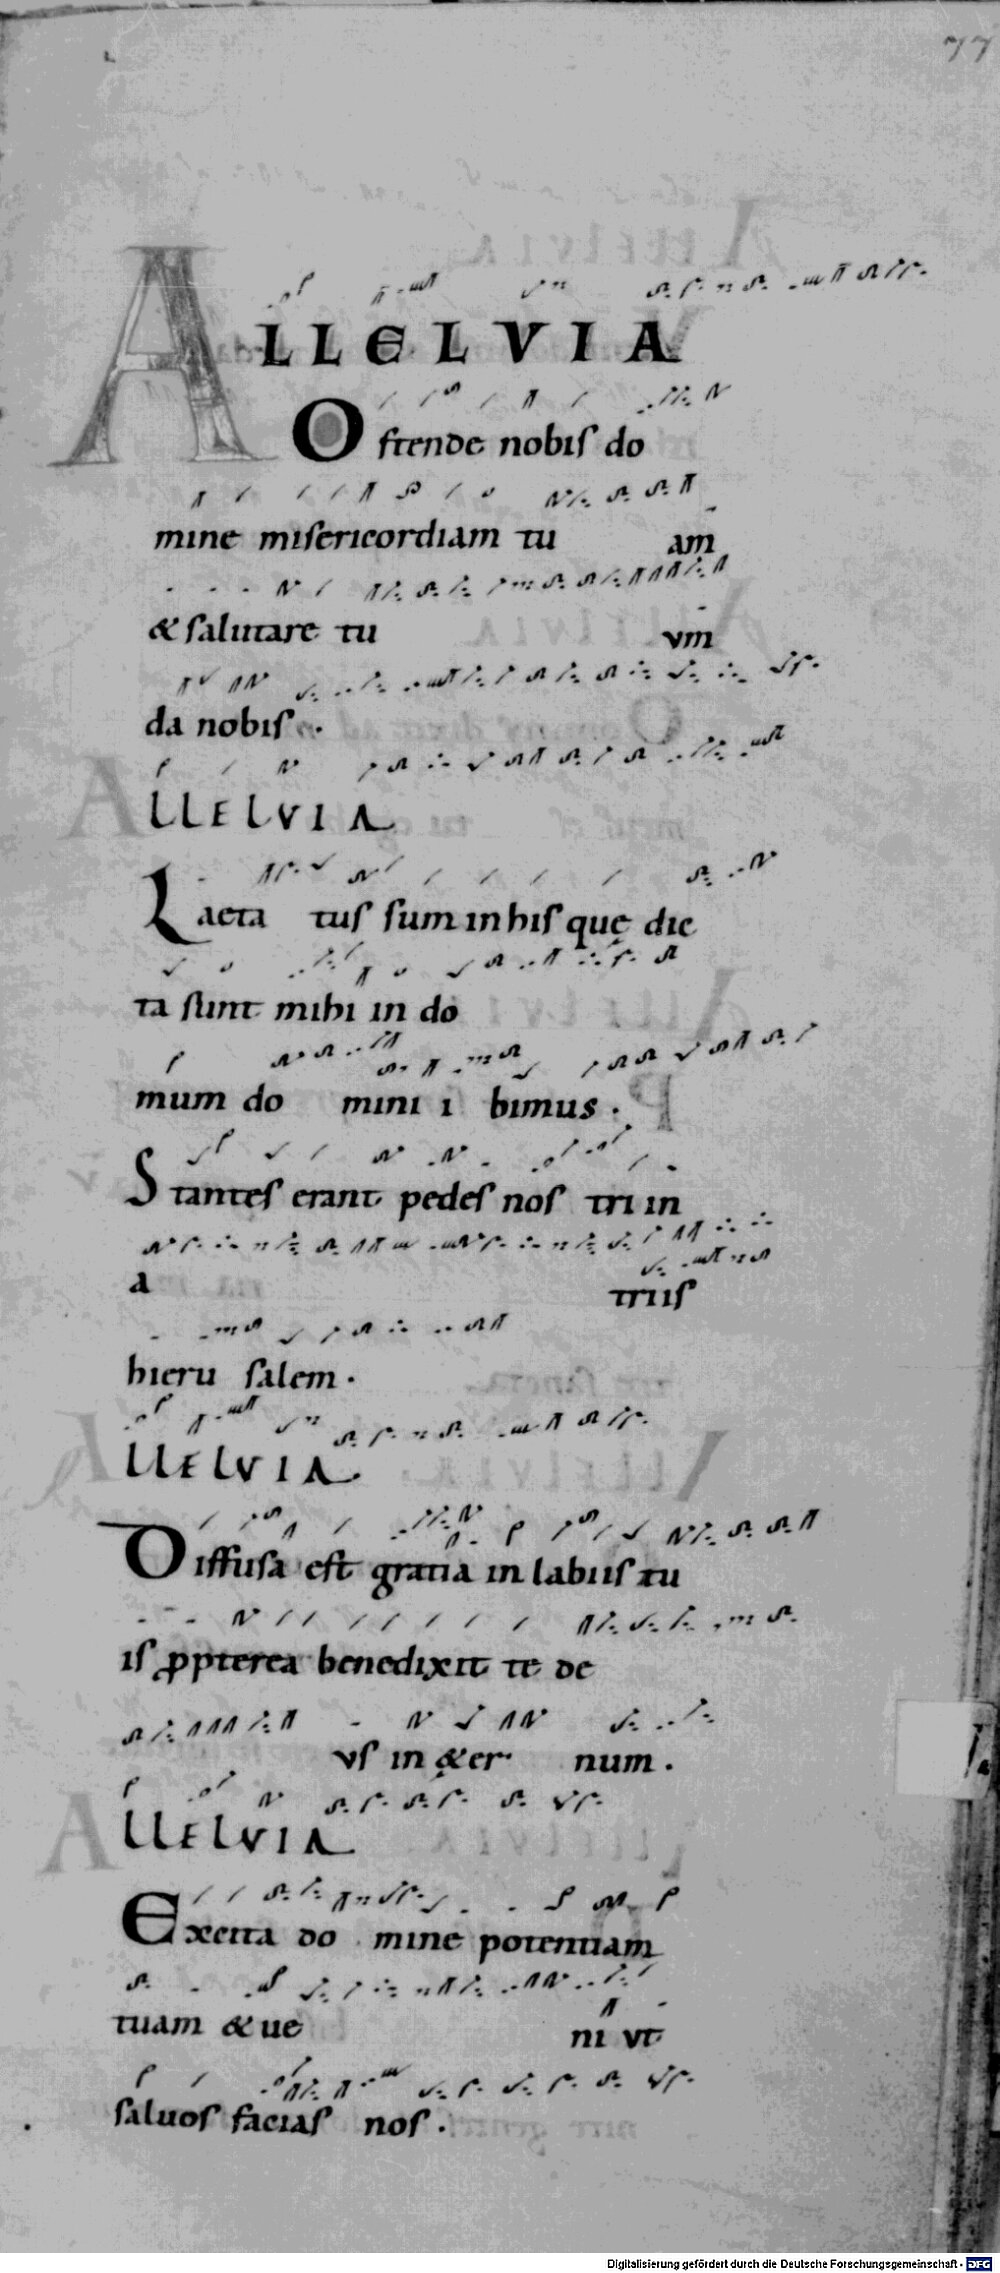 77
ALLELVIA
Ostende nobis do
mine misericordiam tu am
& salutare tu vm
da nobis.
ALLELVIA
Laeta tus sum in his quę dic
ta sunt mihi in do
mum do mini i bimus.
Stantes erant pedes nos tri in
a triis
hieru salem.
ALLELVIA
Diffusa est gratia in labiis tu
is ꝓpterea benedixit te de
vs in &er num.
ALLELVIA
Excita do mine potentiam
tuam & ue ni vt
saluos facias nos.
Digitalisierung gefördert durch die Deutsche Forschungsgemeinschaft - DFG